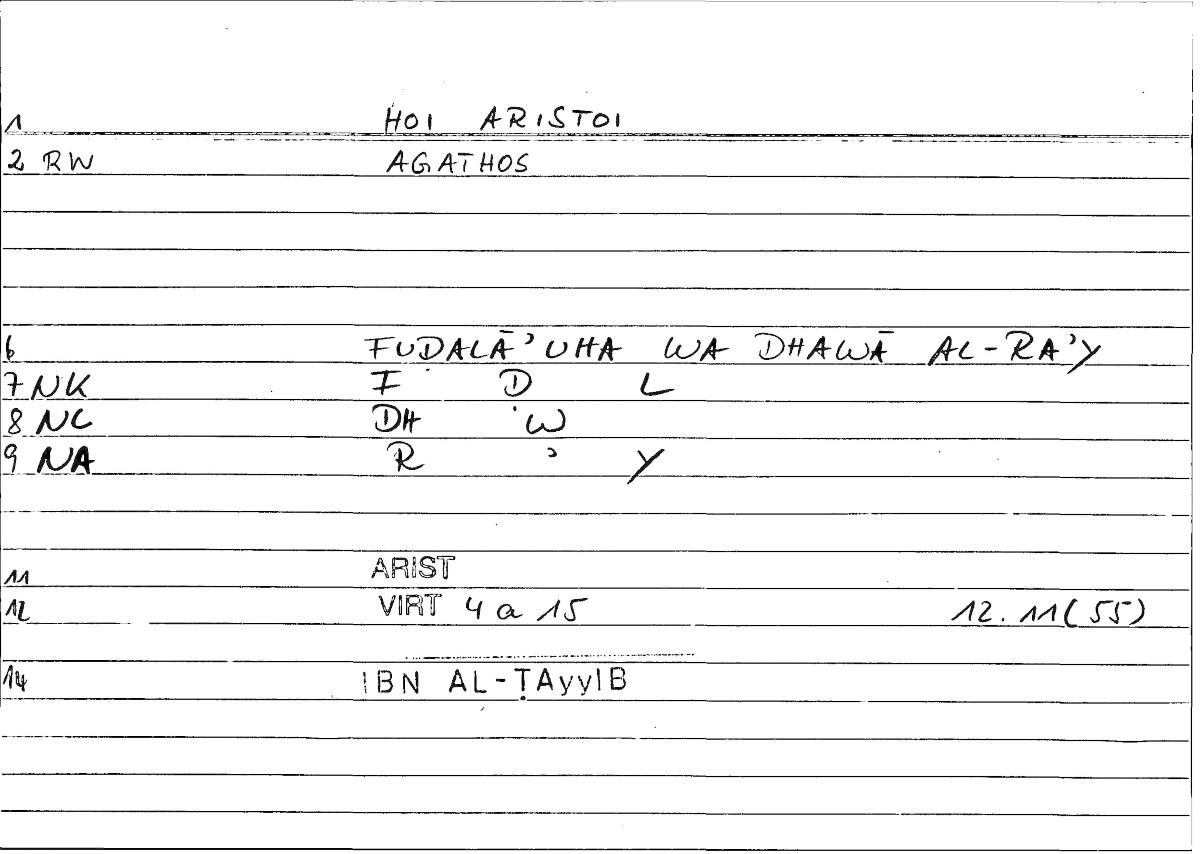 1 HOI ARISTOI
2 RW AGATHOS
6 FUḌALĀʾUHA WA DHAWĀ AL-RAʾY
7 NK F Ḍ L
8 NC DH W
9 NA R ʾ Y
11 ARIST
12 VIRT 4 a 15 12.11(55)
14 IBN AL-ṬAyyIB